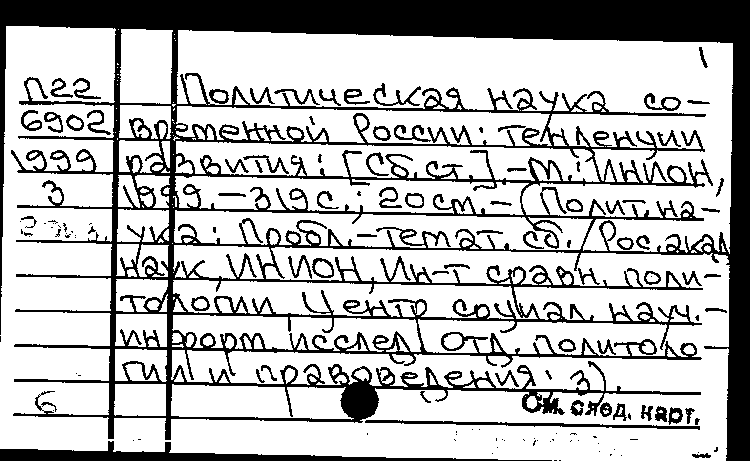 1
П22 Политическая наука со-
6902 временной России: тенденции
1999 развития: [Сб. ст.].-М.: ИНИОН,
3 1999.-319с.; 20см.- (Полит. на-
2 экз. ука: Пробл.-темат. сб. / Рос. акад
наук, ИНИОН, Ин-т сравн. поли-
тологии, Центр социал. науч.-
информ. исслед. Отд. политоло-
гии и правоведения; 3).
6 См. след. карт.